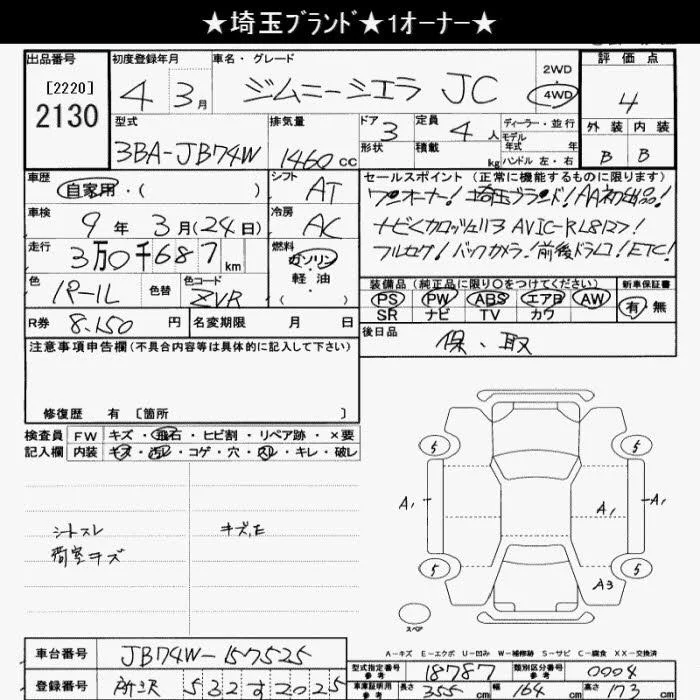 ★埼玉ブランド★1オーナー★
出品番号 初度登録年月 車名・グレード 評価点
[2220]
2130
4 3月 ジムニーシエラ JC 2WD 4WD 4
型式 排気量 ドア 3 定員 4人 ディーラー・並行 外装 内装
3BA-JB74W 1460cc 形状 積載 kg モデル年式 年式 ハンドル 左・右 B B
車歴 自家用・( ) シフト AT セールスポイント(正常に機能するものに限ります)
ワンオーナー!埼玉ブランド!AA初出品!
車検 9年3月(24日) 冷房 AC
ナビ<カロッツェリア AVIC-RL812>!
走行 3万0千687km 燃料 ガソリン 軽油 ( )
フルセグ!バックカメラ!前後ドラレコ!ETC!
色 パール 色替 色コード ZVR
装備品(純正品に限り〇をつけてください) 新車保証書
PS PW ABS エアB AW 有・無
SR ナビ TV カワ
R券 8,150円 名変期限 月 日
後日品 保、取
注意事項申告欄(不具合内容等は具体的に記入して下さい)
修復歴 有 [箇所 ]
検査員 FW キズ・飛石・ヒビ割・リペア跡・×要
記入欄 内装 キズ・汚レ・コゲ・穴・スレ・キレ・破レ
シートスレ キズ,E
荷室キズ
5 5
A1 A1 A1
5 5
A3
スペア
A-キズ E-エクボ U-凹み W-補修跡 S-サビ C-腐食 XX-交換済
車台番号 JB74W-157525
型式指定番号 参考 18787 類別区分番号 参考 0004
登録番号 所沢 532す2025
車庫証明用 参考 長さ 355cm 幅 164cm 高さ 173cm